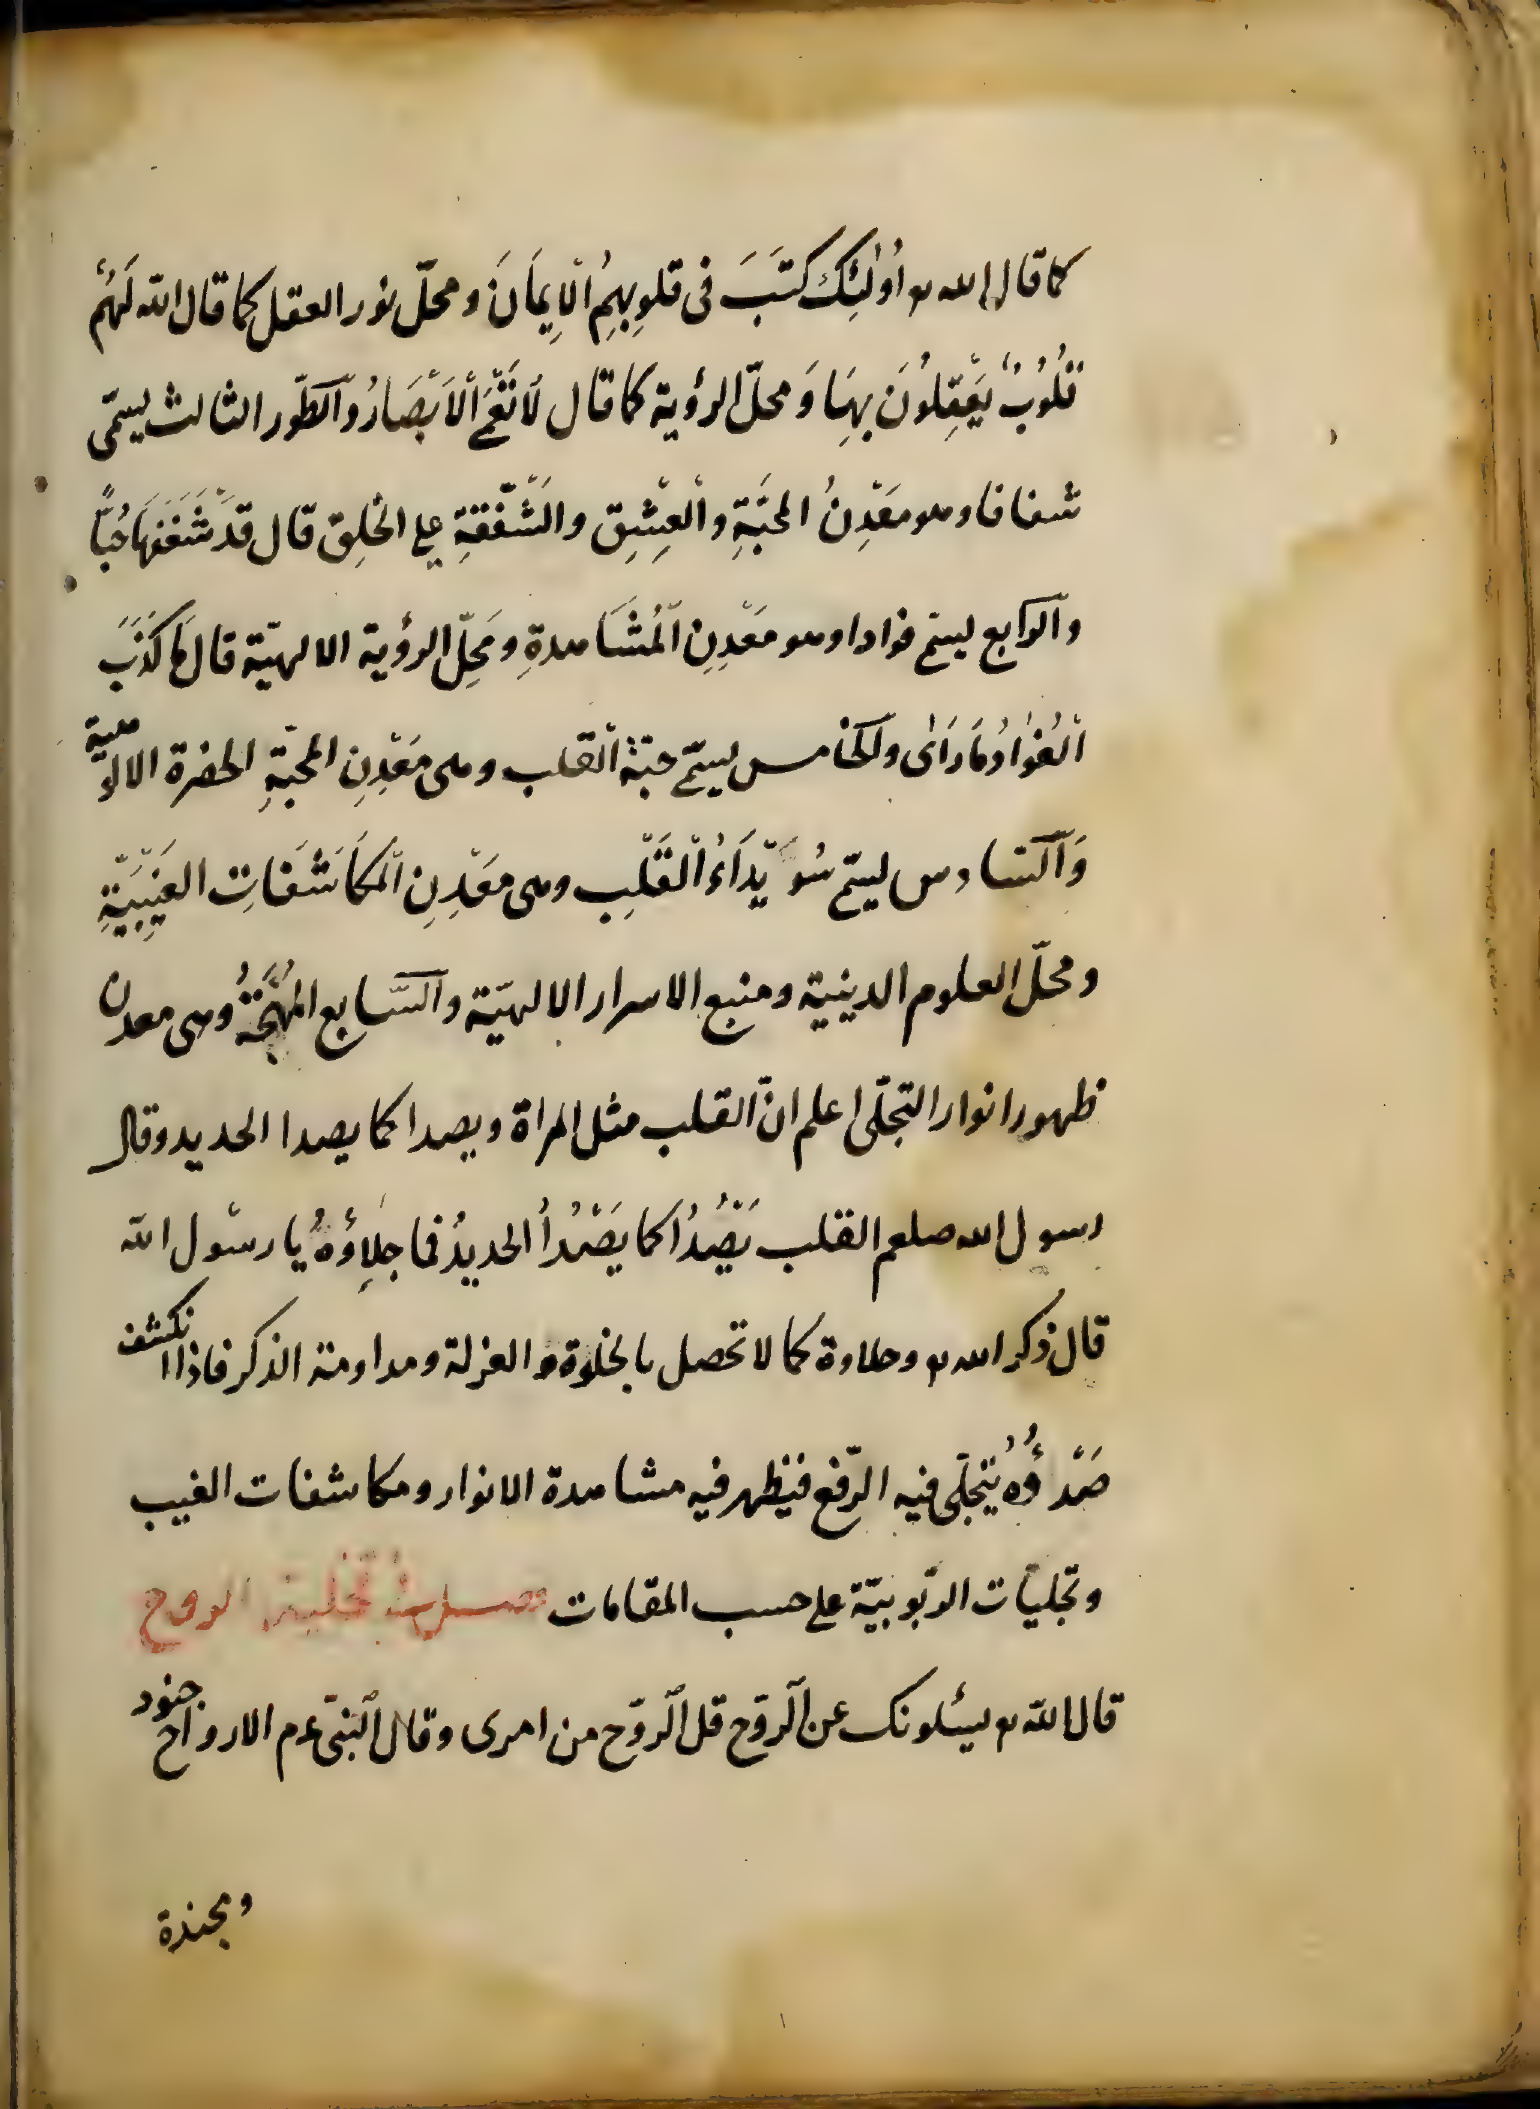 كما قال الله تع اُولٰئِكَ كَتَبَ فى قلوبِهِمُ الْاِيمَانَ ومحلّ نور العقل كما قال الله لَهُمْ
قُلُوبٌ يَعْقِلُونَ بِهَا وَمحلّ الرؤية كما قال لَا تَعْمَى الْاَبْصَارُ والطّور الثالث يسمّى
شغافا وهو مَعْدِنُ المحبَّةِ والْعِشِق والشَّفْقَةِ على الخلِق قال قَدْ شَغَفَهَا حُبًّا
والرّابع يسمّى فوادا وهو مَعْدِنِ الْمُشَاهدةِ ومَحِلّ الرؤية الالهيّة قال مَا كَذَبَ
الْفُؤَادُ مَا رَاٰى والخامس يسمّى حبّة الْقلب وهى مَعْدِنِ المحبّةِ الحضرة الالوهية
وَالسّادس يسمّى سُوَيْدَاءُ الْقَلْبِ وهى مَعْدِنِ الْمكَاشَفَاتِ الغَيْبِيَّةِ
ومحلّ العلوم الدينية ومنبع الاسرار الالهيّة والسّابع المُهْجَةُ وهى معدن
ظهور انوار التجلّى اعلم انّ القلب مثل المراة ويصدا كما يصدا الحديد وقال
رسول الله صلعم القلب يَصْدُاُ كما يَصْدُاُ الحديدُ فما جِلاؤُهُ يا رسول الله
قال ذكر الله تع وحلاوة كما لا تحصل بالخلوة والعزلة ومداومة الذكر فاذا انكشف
صَدْاؤُهُ يتجلّى فيه الرّفع فيظهر فيه مشاهدة الانوار ومكاشفات الغيب
وتجليّات الرّبوبيّة على حسب المقامات فصل فى تحلية الروح
قال الله تع يسئلونك عن الرّوح قل الرّوح من امرى وقال النبىّ عم الارواح جنود
ومجندة